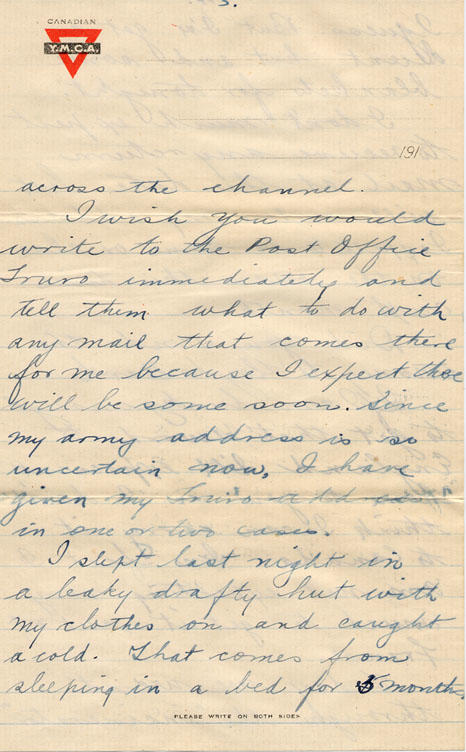 3.
CANADIAN
Y.M.C.A.
191
across the channel.
I wish you would
write to the Post Office
Truro immediately and
tell them what to do with
any mail that comes there
for me because I expect there
will be some soon. Since
my army address is so
uncertain now, I have
given my Truro
in one or two cases.
I slept last night in
a leaky drafty hut with
my clothes on and caught
a cold. That comes from
sleeping in a bed for 5 months.
PLEASE WRITE ON BOTH SIDES